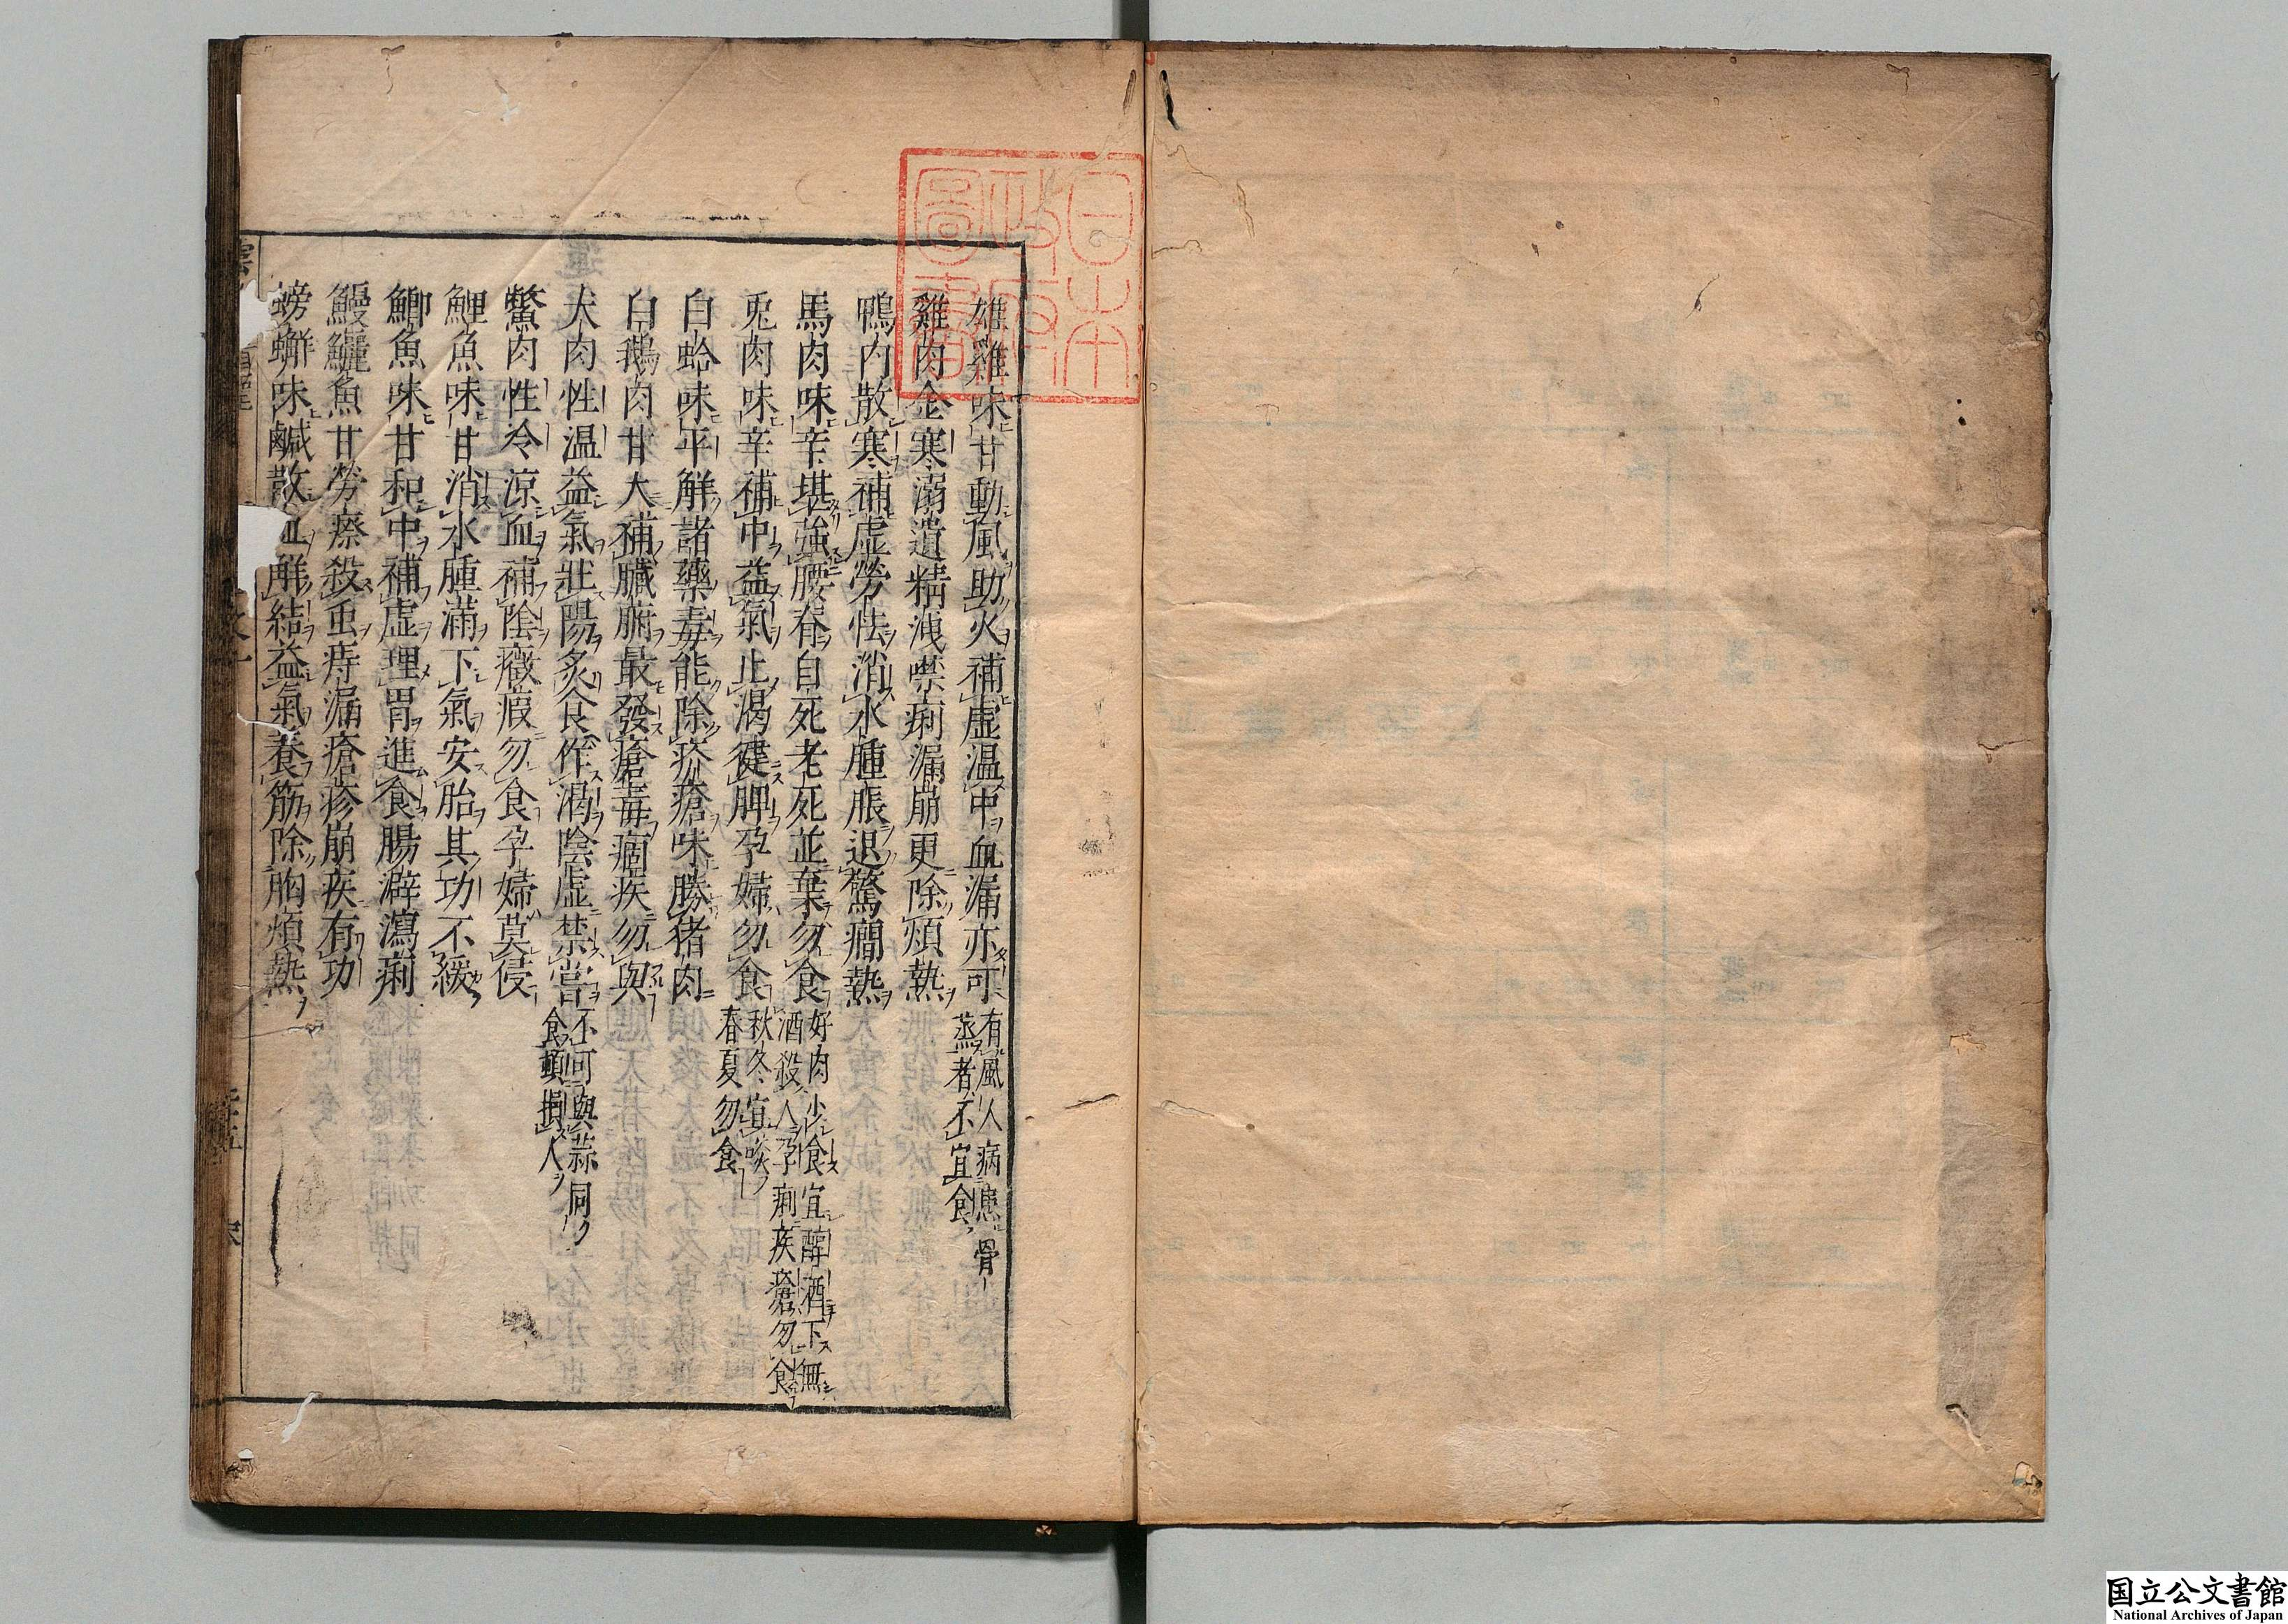 日本
政府
圖書
雄雞味甘動風助火補虛温中血漏亦可 有風人病患骨蒸者不宜食
雞肉金寒溺遺精洩噤痢漏崩更除煩熱
鴨肉散寒補虛勞怯消水腫脹退驚癎熱
馬肉味辛堪強腰脊自死老死並棄勿食 好肉少食宜醇酒下無酒殺人孕痢疾瘡勿食
兎肉味辛補中益氣止渴健脾孕婦勿食 秋冬宜啖春夏勿食
白蛤味平解諸藥毒能除疥瘡味勝猪肉
白鵝肉甘大補臟腑最發瘡毒痼疾勿與
犬肉性温益氣壯陽炙食作渴陰虛禁嘗 不可與蒜同食頓損人
鱉肉性冷涼血補陰癥瘕勿食孕婦莫侵
鯉魚味甘消水腫滿下氣安胎其功不緩
鯽魚味甘和中補虛理胃進食腸澼瀉痢
鰻鱺魚甘勞瘵殺虫痔漏瘡疹崩疾有功
螃蠏味鹹散血解結益氣養筋除胸煩熱
国立公文書館
National Archives of Japan